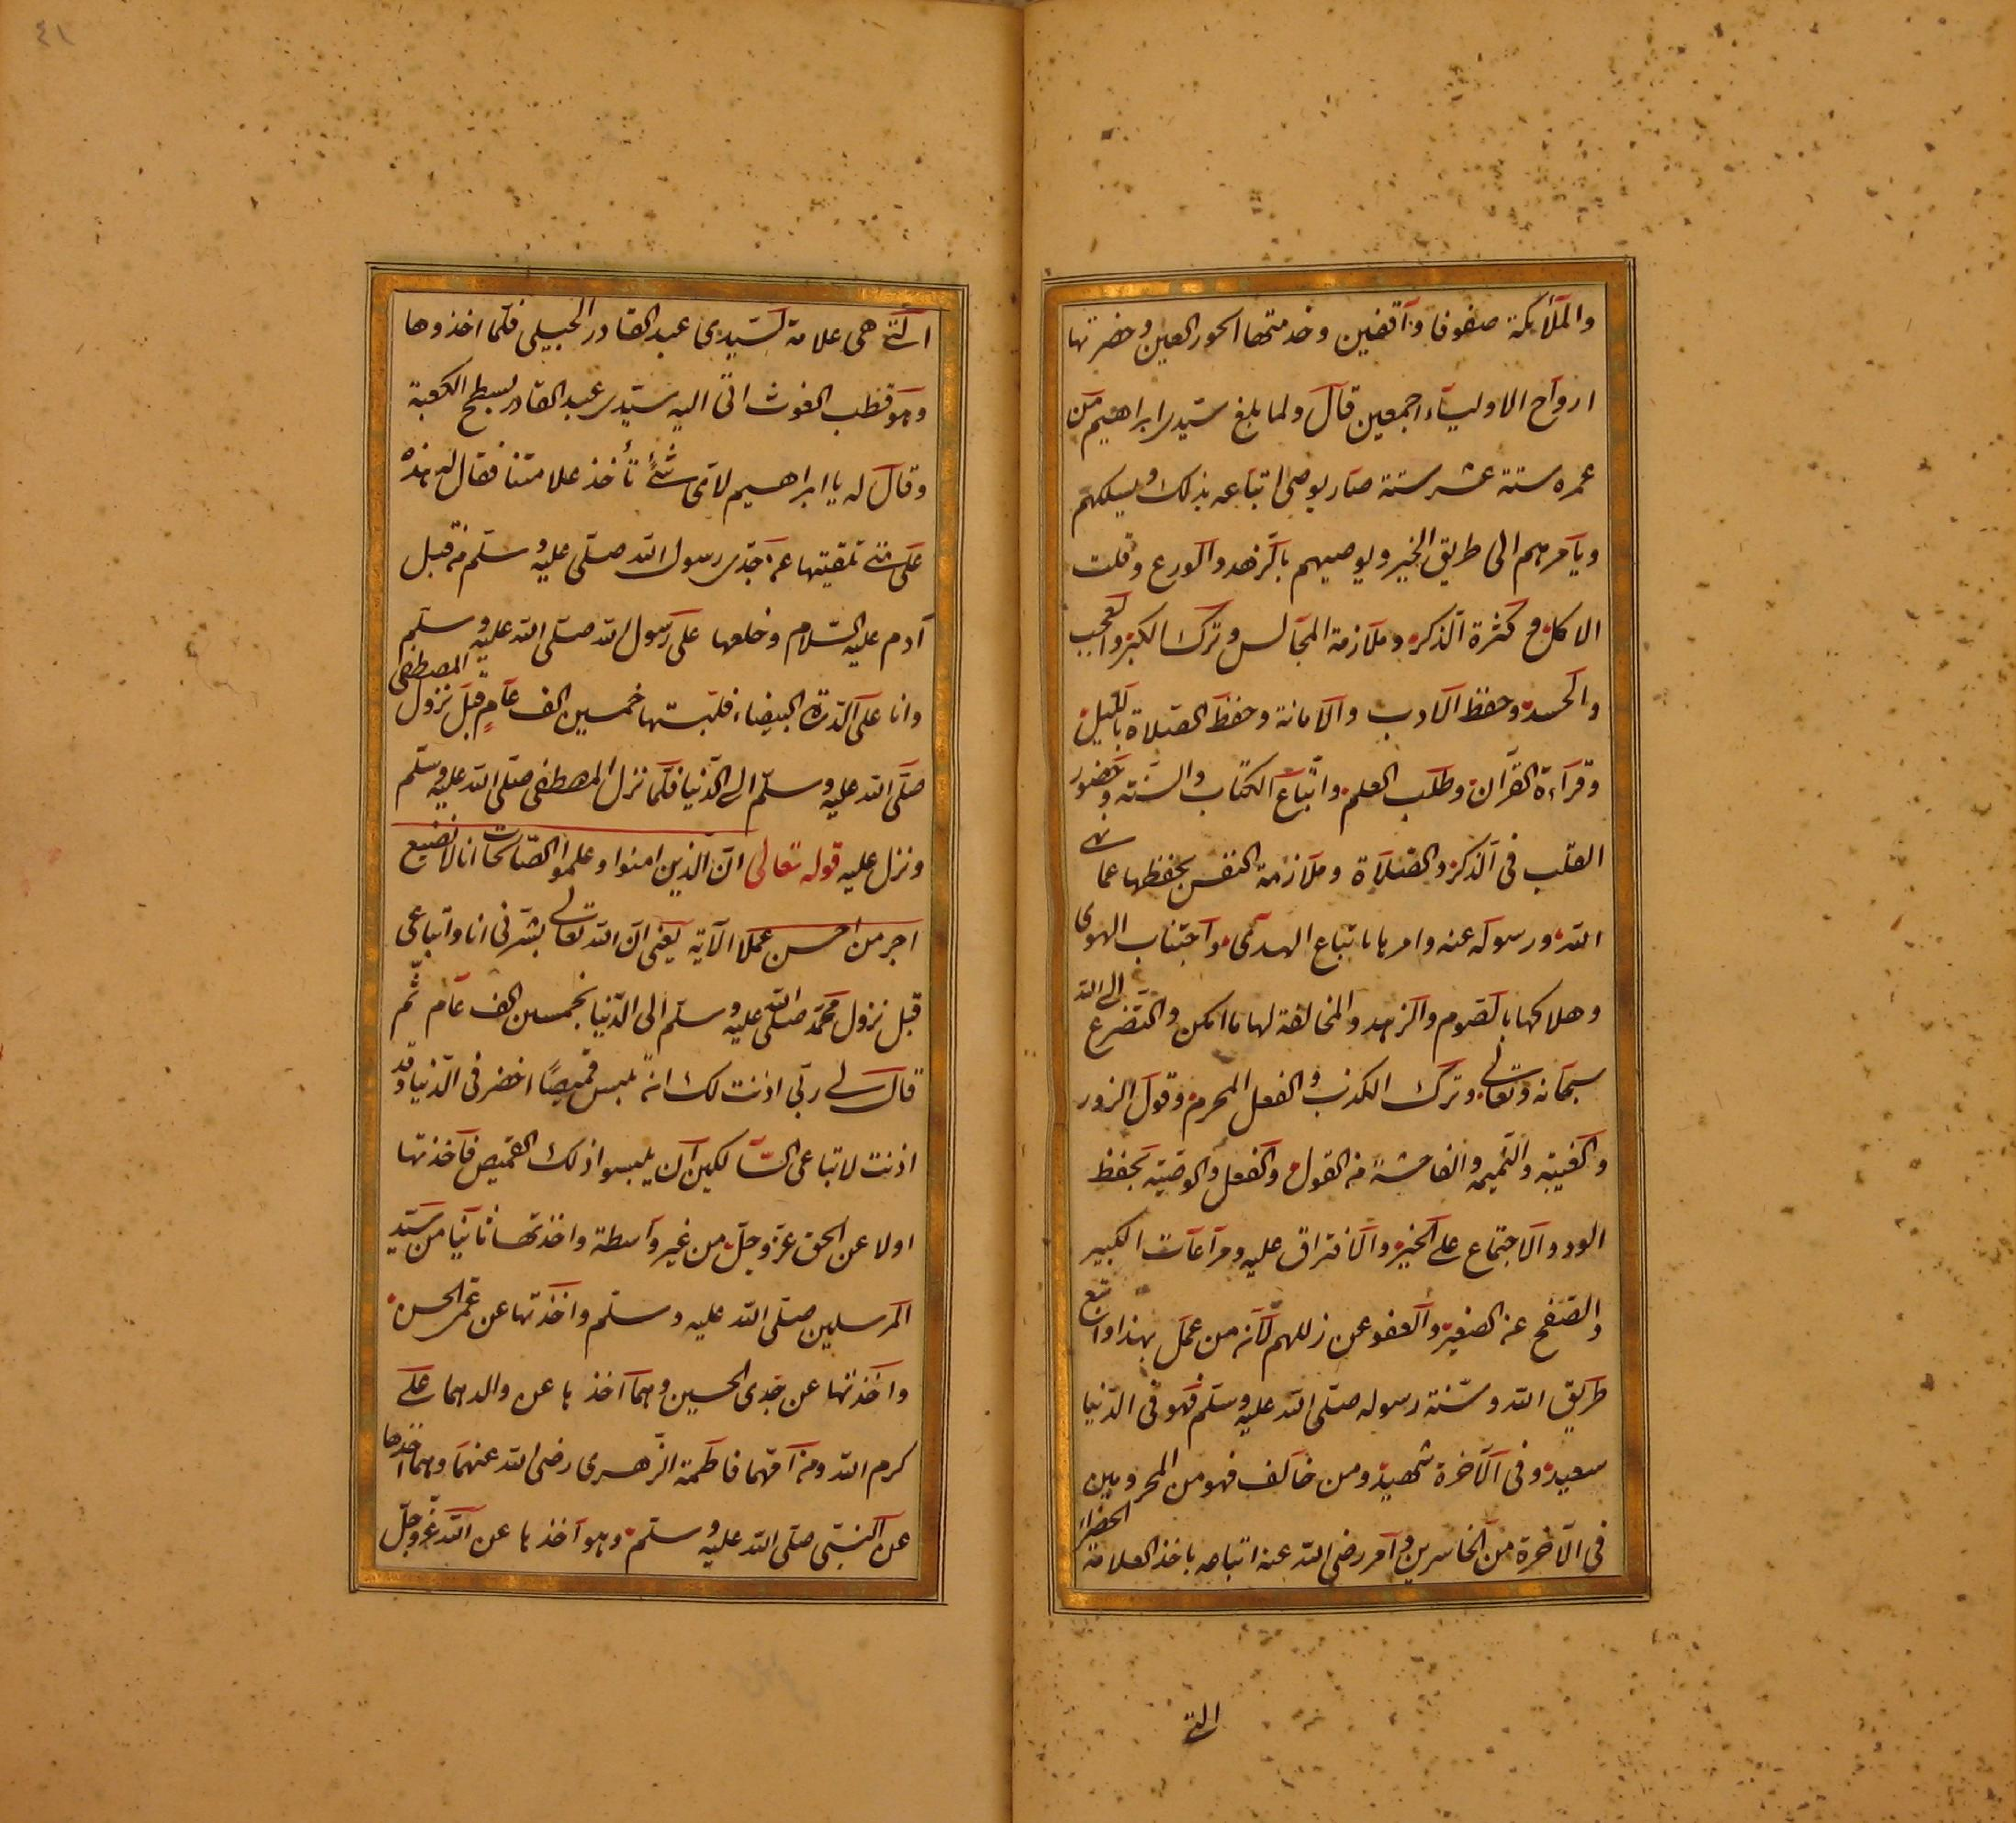 والملائكة صفوفا واقفين وخدمتها الحور العين وحضرتها
ارواح الاولياء اجمعين قال ولما بلغ سيدى ابراهيم من
عمره ستة عشر سنة صار يوصى اتباعه بذلك ويسلكهم
ويامرهم الى طريق الخير ويوصيهم بالزهد والورع وقلت
الاكل وكثرة الذكر وملازمة المجالس وترك الكبر والعجب
والحسد وحفظ الادب والامانة وحفظ الصلاة بالليل
وقراءة القرآن وطلب العلم واتباع الكتاب والسنة وحضور
القلب فى الذكر والصلاة وملازمة النفس بحفظها عما نهى
الله ورسوله عنه وامرها باتباع الهدى واجتناب الهوى
وهلاكها بالصوم والزهد والمخالفة لها ما امكن والتضرع الى الله
سبحانه وتعالى وترك الكذب والفعل المحرم وقول الزور
والغيبة والنميمه والفاحشة من القول والفعل والوصية بحفظ
الود والاجتماع على الخير والافتراق عليه ومراعات الكبير
والصفح عن الصغير والعفو عن زللهم لانه من عمل بهذا واتبع
طريق الله وسنة رسوله صلى الله عليه وسلم فهو فى الدنيا
سعيد وفى الآخرة شهيد ومن خالف فهو من المحرومين
فى الآخرة من الخاسرين وآمر رضى الله عنه اتباعه باخذ العلامة الخضراء
التى
٤١
التى هى علامة لسيدى عبد القادر الجيلى فلما اخذوها
وهو قطب الغوث اتى اليه سيدى عبد القادر بسطح الكعبة
وقال له يا ابراهيم لاى شئ تأخذ علامتنا فقال له هذه
علامتى تلقيتها عن جدى رسول الله صلى عليه وسلم من قبل
آدم عليه السلام وخلعها على رسول الله صلى الله عليه وسلم
وانا على الدرة البيضاء فلبستها خمسين الف عام قبل نزول المصطفى
صلى الله عليه وسلم الى الدنيا فلما نزل المصطفى صلى الله عليه وسلم
ونزل عليه قوله تعالى ان الذين امنوا وعلموا الصالحات انا لا نضيع
اجر من احسن عملا الآية يعنى ان الله تعالى بشرنى انا واتباعى
قبل نزول محمد صلى الله عليه وسلم الى الدنيا بخمسين الف عام ثم
قال لى ربى اذنت لك ان تلبس قميصا اخضر فى الدنيا وقد
اذنت لاتباعى السالكين ان يلبسوا ذلك القميص فاخذتها
اولا عن الحق عز وجل من غير واسطة واخذتها ثانيا من سيد
المرسلين صلى الله عليه وسلم واخذتها عن عمى الحسن
واخذتها عن جدى الحسين وهما آخذها عن والدهما على
كرم الله ومن امهما فاطمة الزهرى رضى الله عنهما وهما اخذها
عن النبى صلى الله عليه وسلم وهو آخذها عن الله عز وجل